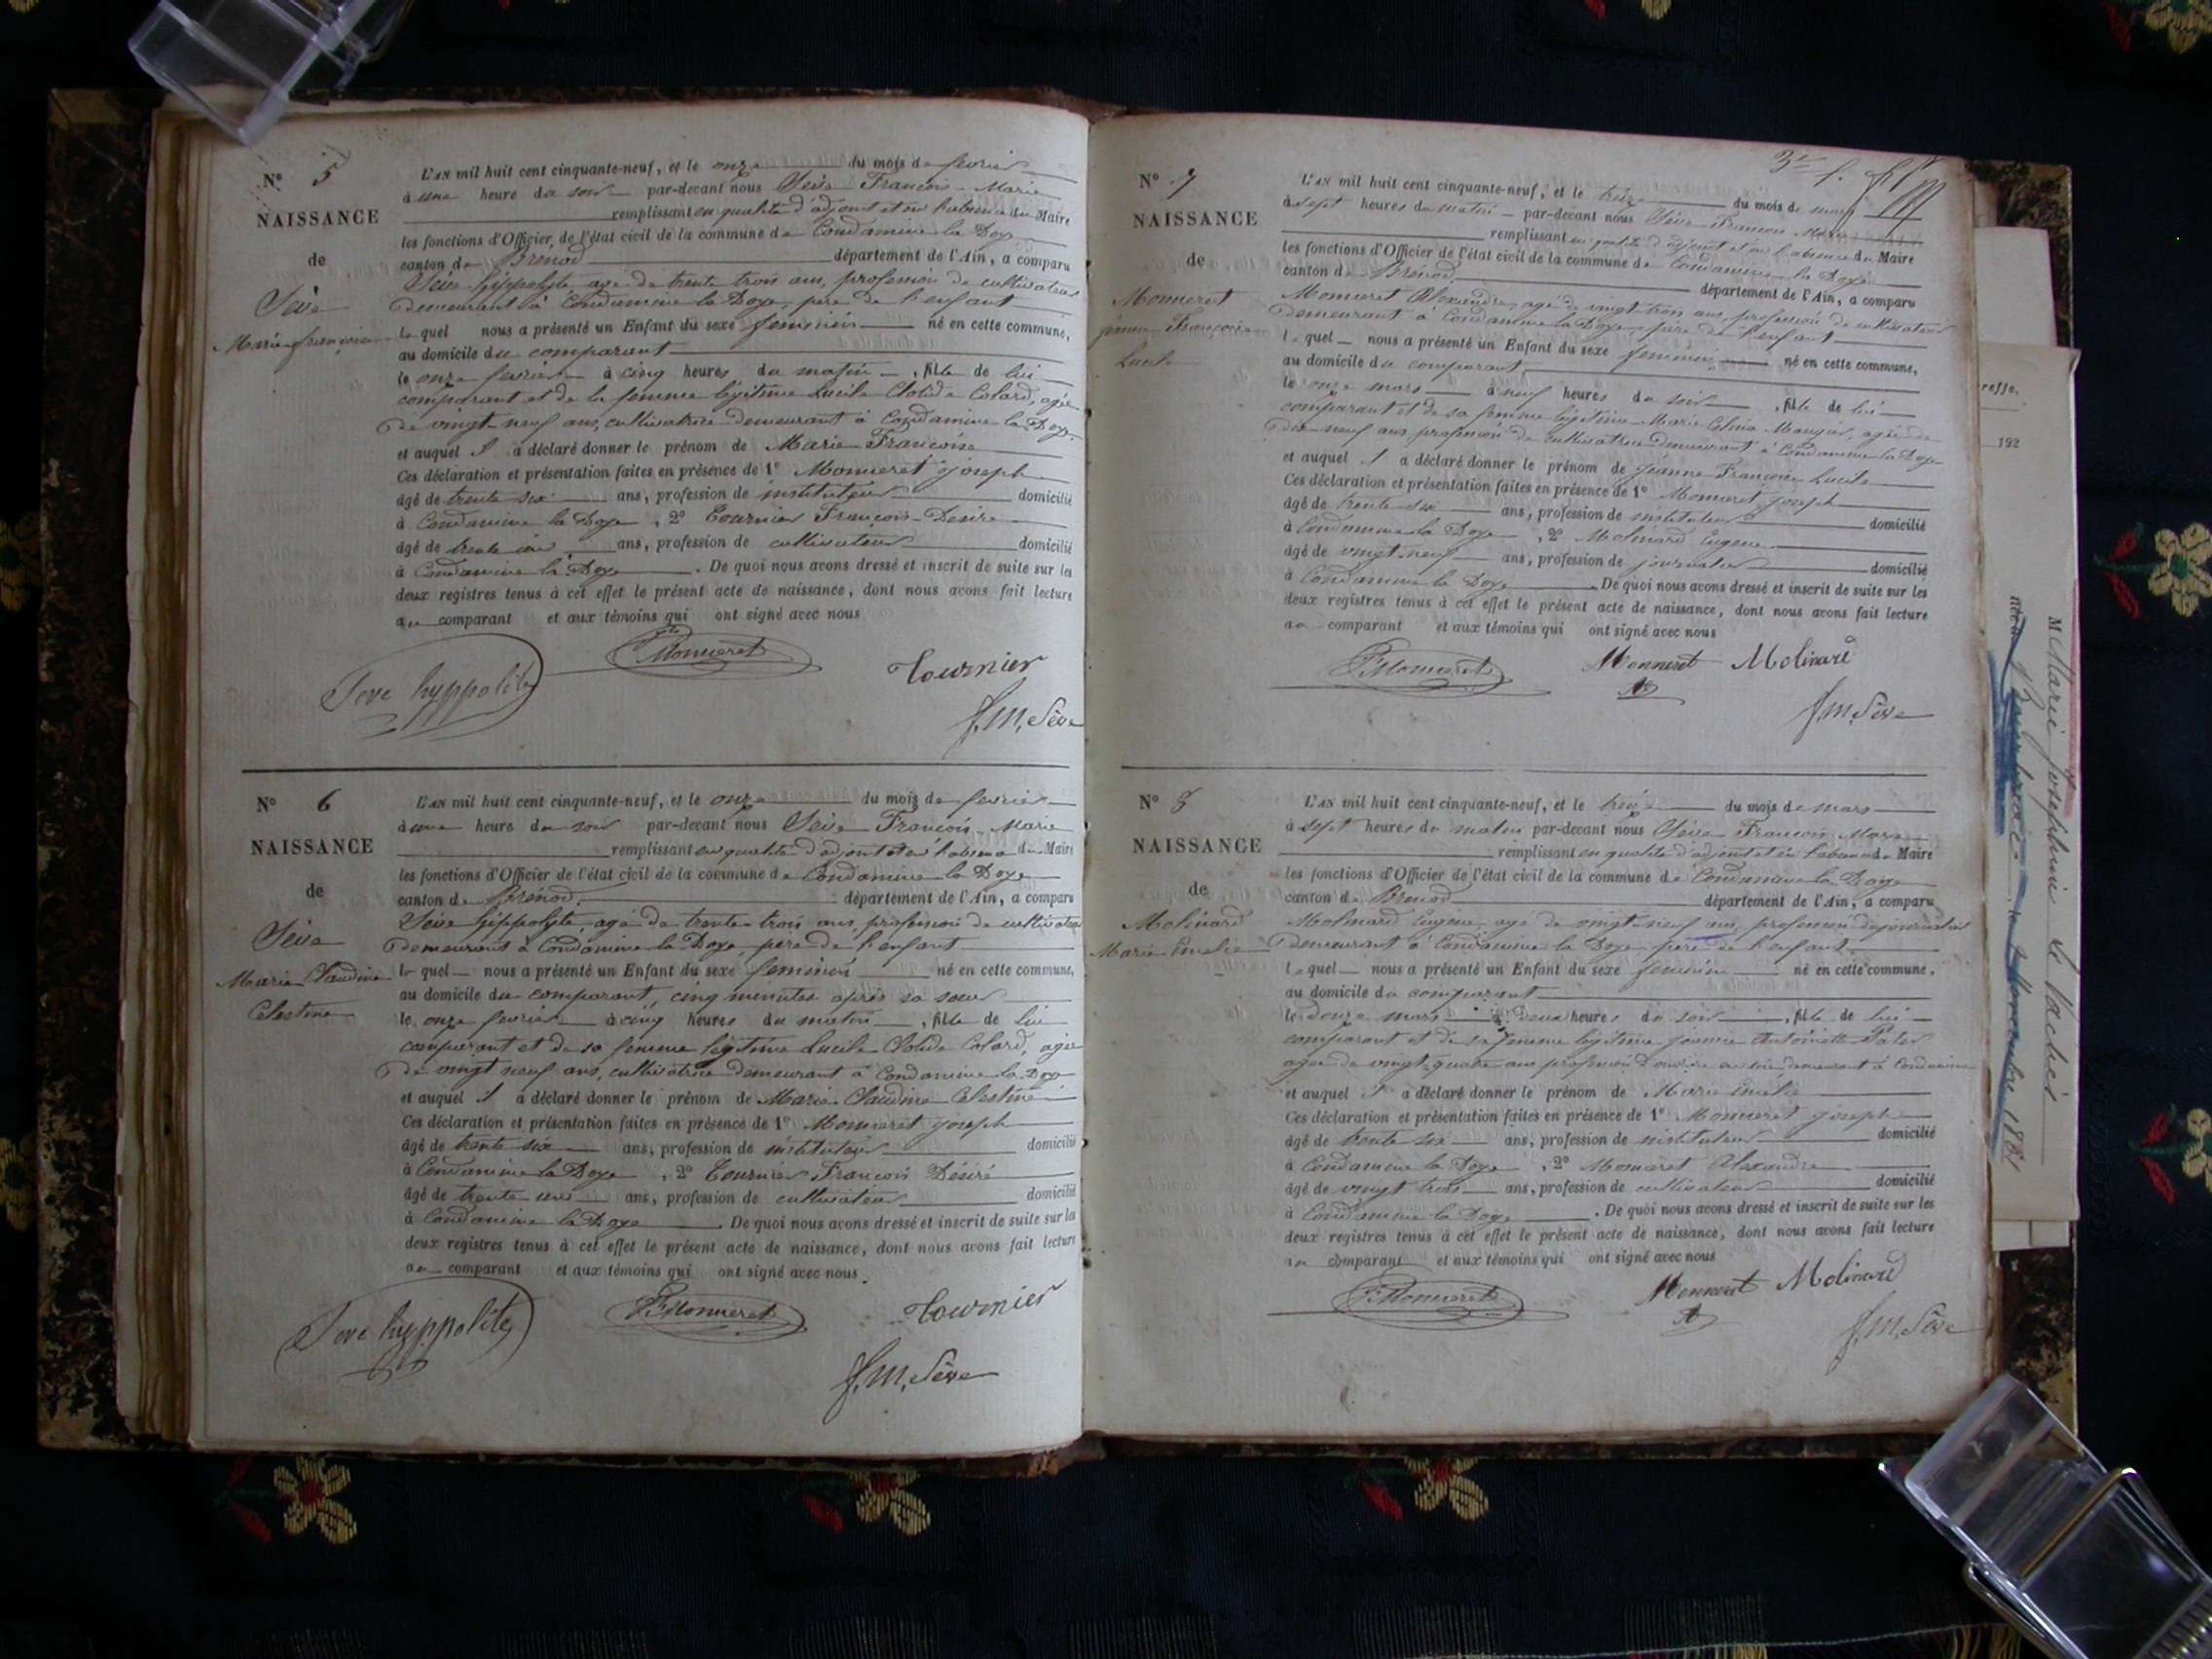 N° 5
NAISSANCE
de
Sève
Marie françoise
L'AN mil huit cent cinquante-neuf, et le onze du mois de fevrier
à une heure du soir par-devant nous Sève François-Marie
remplissant en qualité d'adjoint et en l'absence du Maire
les fonctions d'Officier de l'état civil de la commune de Condamine la Doye
canton de Brénod département de l'Ain, a comparu
Sève hippolyte, agé de trente trois ans, profession de cultivateur
demeurant à Condamine la Doye, père de l'enfant
lequel nous a présenté un Enfant du sexe feminin né en cette commune,
au domicile du comparant
le onze fevrier à cinq heures du matin, fille de lui
comparant et de sa femme légitime Lucile Clotide Colard, agée
de vingt-neuf ans, cultivatrice demeurant à Condamine la Doye
et auquel il a déclaré donner le prénom de Marie Françoise
Ces déclaration et présentation faites en présence de 1° Monneret joseph
âgé de trente six ans, profession de instituteur domicilié
à Condamine la Doye, 2° Tournier François-Désiré
âgé de trente un ans, profession de cultivateur domicilié
à Condamine la Doye. De quoi nous avons dressé et inscrit de suite sur les
deux registres tenus à cet effet le présent acte de naissance, dont nous avons fait lecture
au comparant et aux témoins qui ont signé avec nous
Monneret
Seve hyppolite
Tournier
f.m. Sève
N° 6
NAISSANCE
de
Sève
Marie Claudine
Celestine
L'AN mil huit cent cinquante-neuf, et le onze du mois de fevrier
à une heure du soir par-devant nous Sève François-Marie
remplissant en qualité d'adjoint et en l'absence du Maire
les fonctions d'Officier de l'état civil de la commune de Condamine la Doye
canton de Brénod département de l'Ain, a comparu
Sève hippolyte, agé de trente trois ans, profession de cultivateur
demeurant à Condamine la Doye, père de l'enfant
lequel nous a présenté un Enfant du sexe feminin né en cette commune,
au domicile du comparant, cinq minutes après sa soeur
le onze fevrier à cinq heures du matin, fille de lui
comparant et de sa femme légitime Lucile Clotide Colard, agée
de vingt neuf ans, cultivatrice demeurant à Condamine la Doye
et auquel il a déclaré donner le prénom de Marie Claudine Celestine
Ces déclaration et présentation faites en présence de 1° Monneret joseph
âgé de trente six ans, profession de instituteur domicilié
à Condamine la Doye, 2° Tournier François Désiré
âgé de trente un ans, profession de cultivateur domicilié
à Condamine la Doye. De quoi nous avons dressé et inscrit de suite sur les
deux registres tenus à cet effet le présent acte de naissance, dont nous avons fait lecture
au comparant et aux témoins qui ont signé avec nous.
Seve hyppolite
Monneret
Tournier
f.m. Sève
N° 7
NAISSANCE
de
Monneret
jeanne Françoise
Lucile
L'AN mil huit cent cinquante-neuf, et le treize du mois de mars
à sept heures du matin par-devant nous Sève François Marie
remplissant en qualité d'adjoint et en l'absence du Maire
les fonctions d'Officier de l'état civil de la commune de Condamine la Doye
canton de Brénod département de l'Ain, a comparu
Monneret Alexandre, agé de vingt trois ans, profession de cultivateur
demeurant à Condamine la Doye père de l'enfant
lequel nous a présenté un Enfant du sexe feminin né en cette commune,
au domicile du comparant
le onze mars à neuf heures du soir, fille de lui
comparant et de sa femme légitime Marie Mangin, agée de
dix-neuf ans, profession de cultivatrice demeurant à Condamine la Doye
et auquel il a déclaré donner le prénom de jeanne Françoise Lucile
Ces déclaration et présentation faites en présence de 1° Monneret joseph
âgé de trente six ans, profession de instituteur domicilié
à Condamine la Doye, 2° Molinard Eugène
âgé de vingt-neuf ans, profession de journalier domicilié
à Condamine la Doye. De quoi nous avons dressé et inscrit de suite sur les
deux registres tenus à cet effet le présent acte de naissance, dont nous avons fait lecture
au comparant et aux témoins qui ont signé avec nous
Monneret
Monneret
Molinard
f.m. Sève
N° 8
NAISSANCE
de
Molinard
Marie Emelie
L'AN mil huit cent cinquante-neuf, et le treize du mois de mars
à sept heures du matin par-devant nous Sève François Marie
remplissant en qualité d'adjoint et en l'absence du Maire
les fonctions d'Officier de l'état civil de la commune de Condamine la Doye
canton de Brénod département de l'Ain, a comparu
Molinard Eugène, agé de vingt-neuf ans, profession de journalier
demeurant à Condamine la Doye père de l'enfant
lequel nous a présenté un Enfant du sexe feminin né en cette commune,
au domicile du comparant
le douze mars à deux heures du soir, fille de lui
comparant et de sa femme légitime jeanne Antoinette
agée de vingt-quatre ans profession d'ouvrière en soie demeurant à Condamine
et auquel il a déclaré donner le prénom de Marie Emelie
Ces déclaration et présentation faites en présence de 1° Monneret joseph
âgé de trente six ans, profession de instituteur domicilié
à Condamine la Doye, 2° Monneret Alexandre
âgé de vingt trois ans, profession de cultivateur domicilié
à Condamine la Doye. De quoi nous avons dressé et inscrit de suite sur les
deux registres tenus à cet effet le présent acte de naissance, dont nous avons fait lecture
au comparant et aux témoins qui ont signé avec nous
Monneret
Monneret
Molinard
f.m. Sève
192
M Marie joséphine
novembre 1881